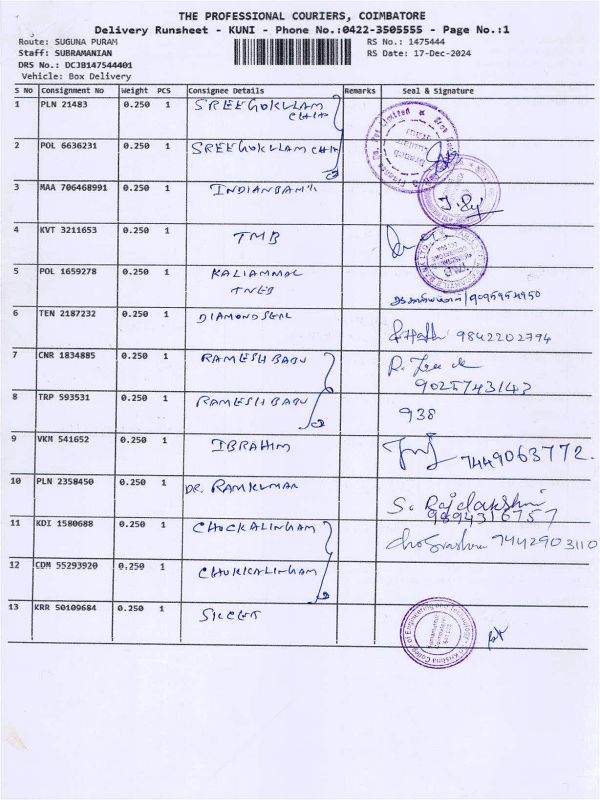 THE PROFESSIONAL COURIERS, COIMBATORE
Delivery Runsheet - KUNI - Phone No.:0422-3505555 - Page No.:1
Route: SUGUNA PURAM RS No.: 1475444
Staff: SUBRAMANIAN RS Date: 17-Dec-2024
DRS No.: DCJB147544401
Vehicle: Box Delivery
S No Consignment No Weight PCS Consignee Details Remarks Seal & Signature
1 PLN 21483 0.250 1 SREEGOKULAM
CHIT
2 POL 6636231 0.250 1 SREEGOKULLAM CHIT
3 MAA 706468991 0.250 1 INDIANBANK
4 KVT 3211653 0.250 1 TMB
5 POL 1659278 0.250 1 KALIAMMAL
TNEB
6 TEN 2187232 0.250 1 DIAMONDSEAL
9842202794
7 CNR 1834885 0.250 1 RAMESHBABU
9025743143
8 TRP 593531 0.250 1 RAMESHBABU
938
9 VKM 541652 0.250 1 IBRAHIM 7449063772.
10 PLN 2358450 0.250 1 DR. RAMKUMAR S. Rajalakshmi
9894316757
11 KDI 1580688 0.250 1 CHOCKALINGAM 7442903110
12 CDM 55293920 0.250 1 CHOKKALINGAM
13 KRR 50109684 0.250 1 SKCET